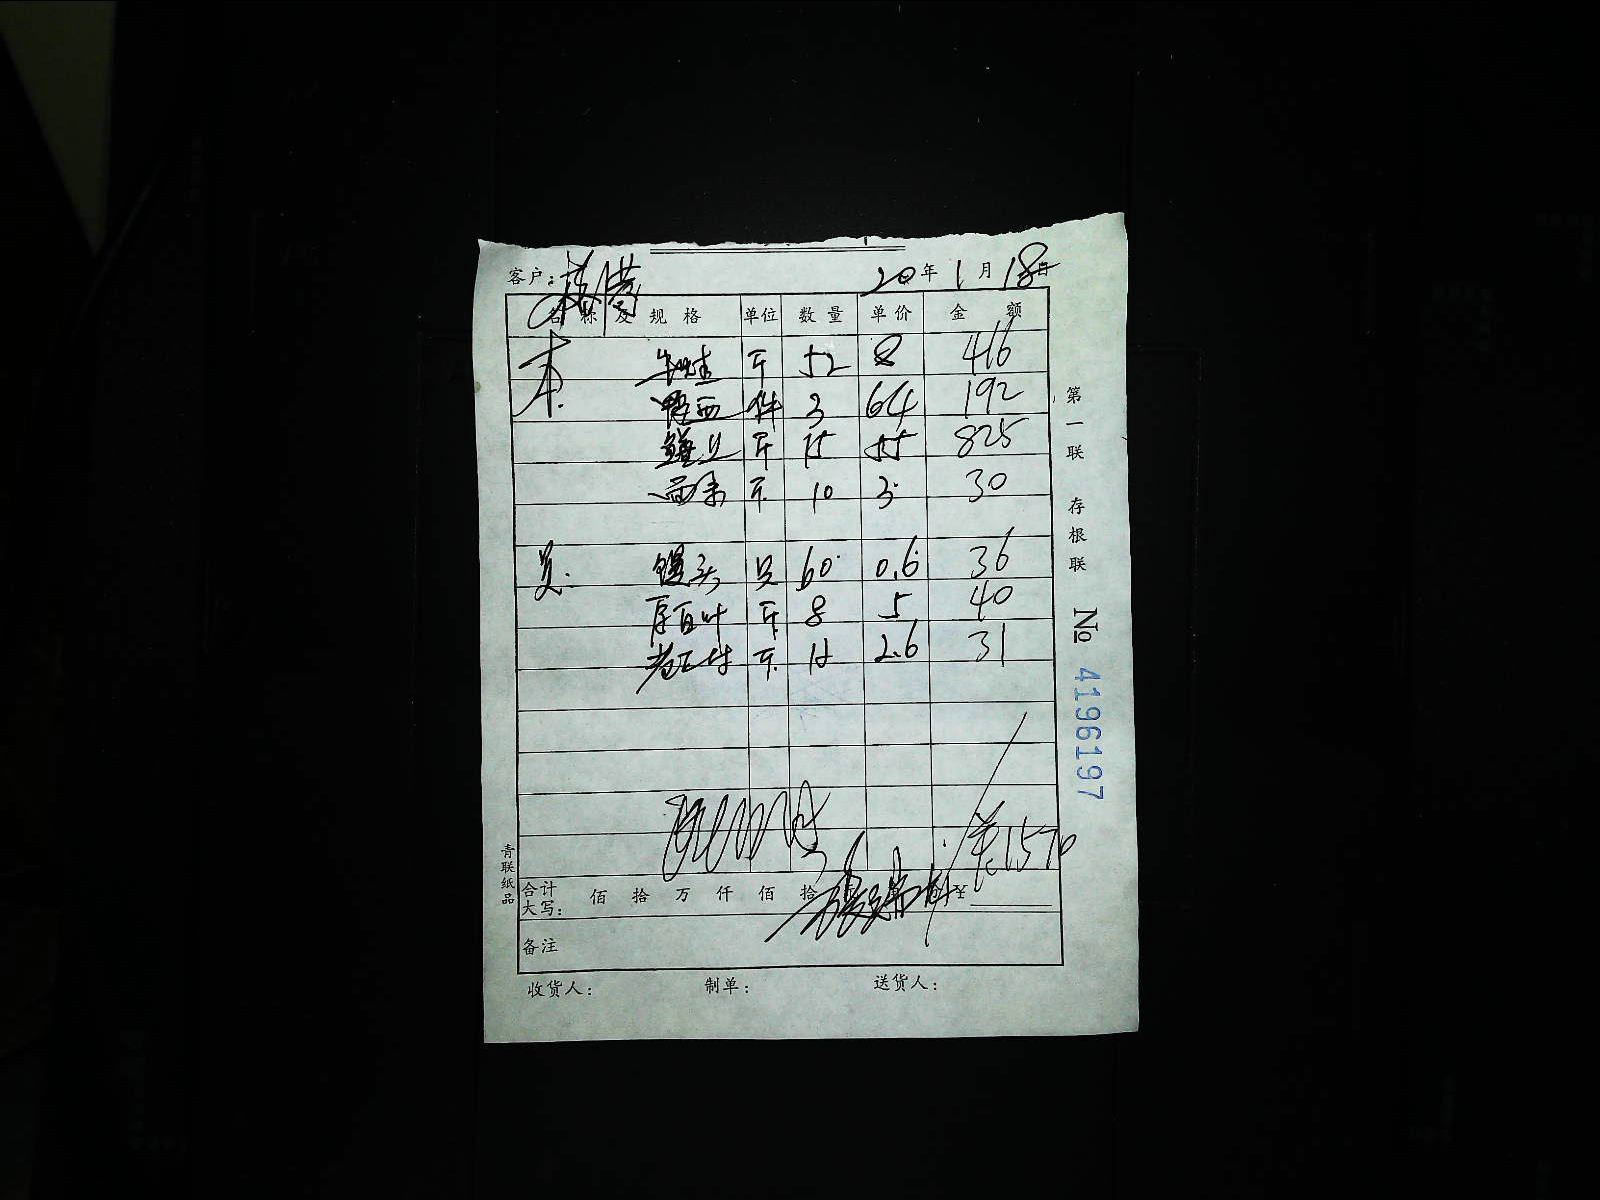 客户： 20年1月18日
名称及规格 单位 数量 单价 金额
本 牛蛙 斤 52 8 416
件 3 64 192
斤 15 55 825
斤 10 3 30
员 馒头 只 60 0.6 36
厚百叶 斤 8 5 40
斤 12 2.6 31
共1570
合计大写： 佰 拾 万 仟 佰 拾 ￥
备注
收货人： 制单： 送货人：
第一联 存根联 № 4196197
青联纸品